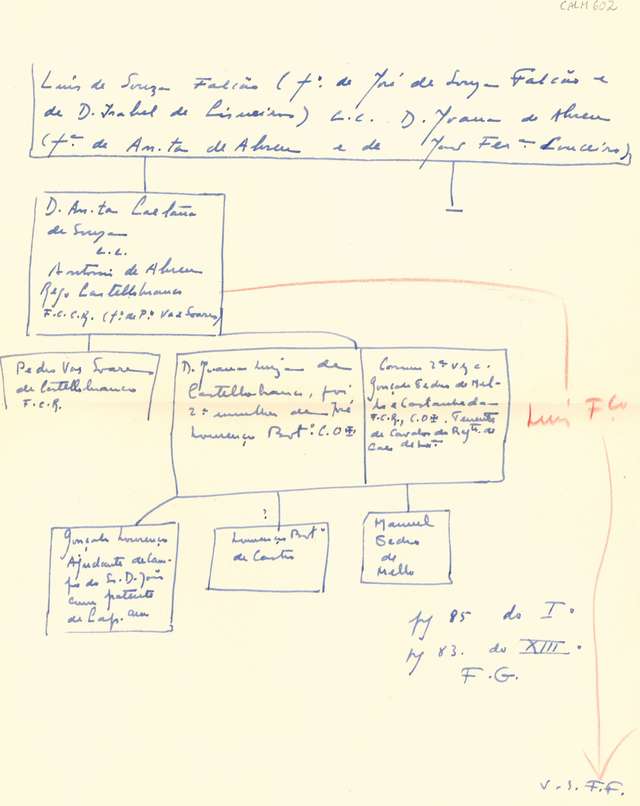 CALM 602
Luís de Souza Falcão (fº. de José de Souza Falcão e
de D. Isabel de Cisneiros) c.c. D. Joana de Abreu
(fª. de An.ta de Abreu e de Fer.ª
D. An.ta Caetana
de Souza
c.c.
António de Abreu
Rego Castellobranco
F.C.C.R. (fº de Pº Vaz Soares)
Pedro Vaz Soares
de Castellobranco
F.C.R.
D. Joana Luiza de
Castellobranco, foi
2ª mulher de José
Lourenço Botº. C.O
Casou 2ª vez c.
Gonçalo Pedro de Mel-
lo e Castanheda
F.C.R., C.O Tenente
de Cavalos do Regtº. do
Caes
Luís Fco
Gonçalo Lourenço
Ajudante de Cam-
po do Sr. D. João
com patente
de Cap.
?
Lourenço Botº
de Castro
Manuel
Pedro
de
Mello
pg 85 do Iº
pg 83. do XIIIº
F.G.
v. s. F.F.